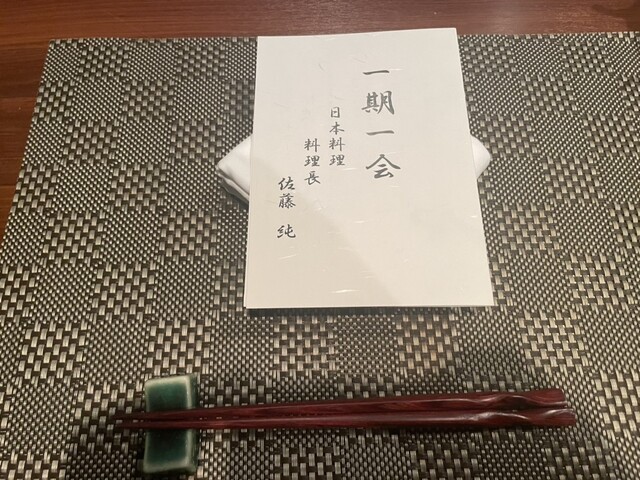 一期一会
日本料理
料理長
佐藤 純